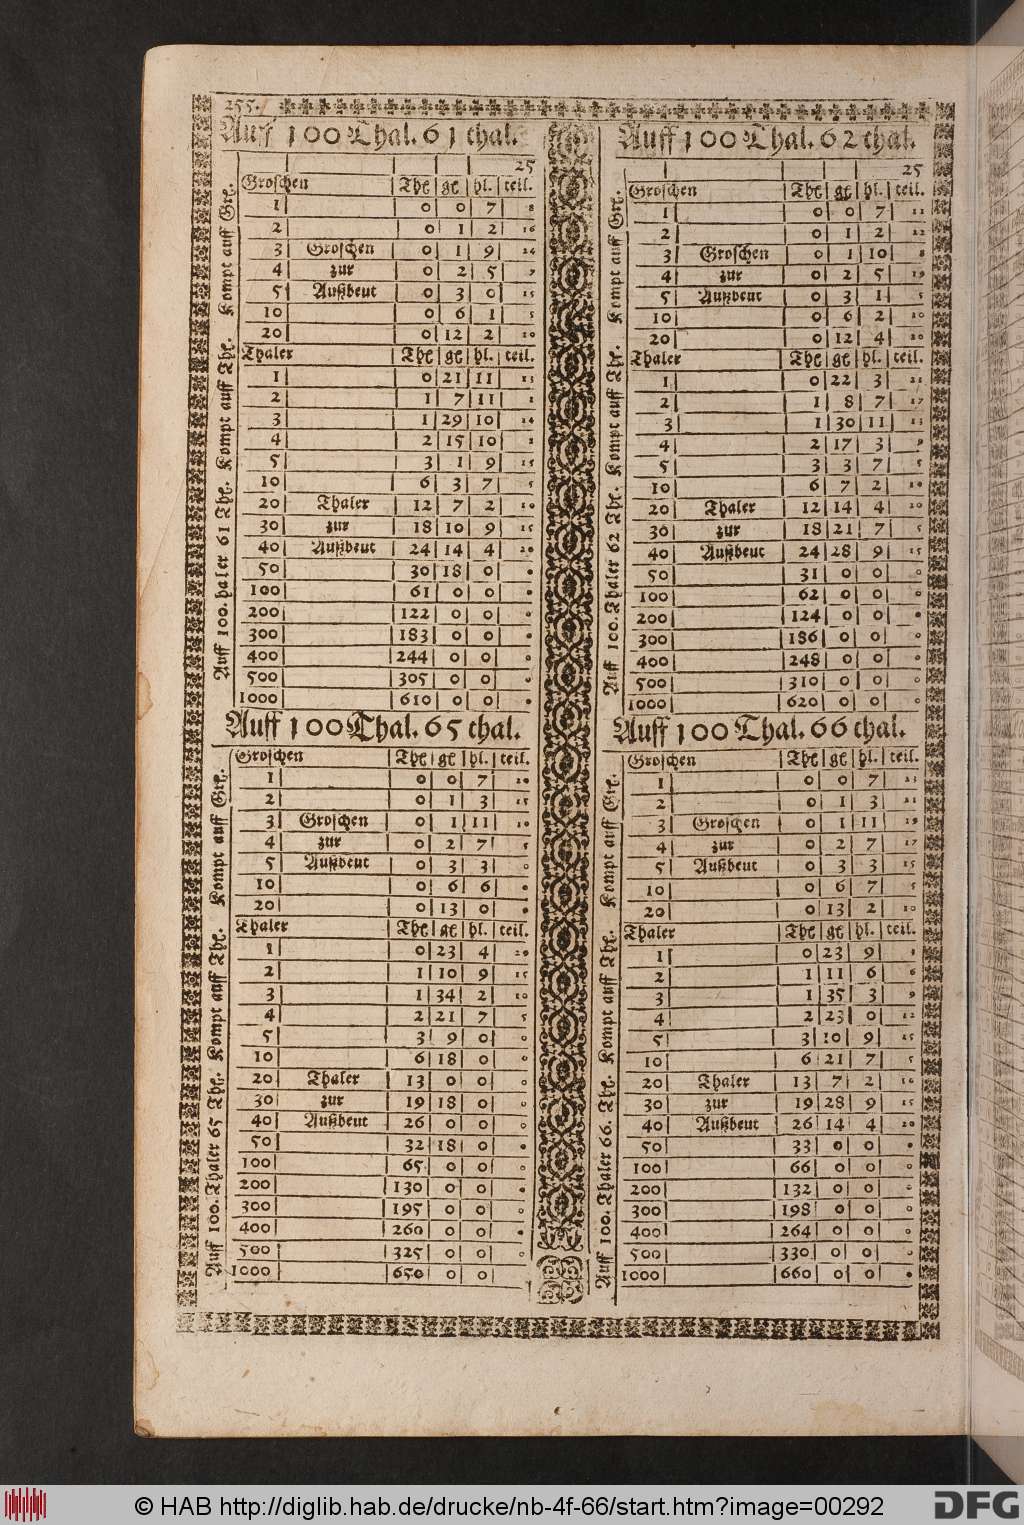 255.
Auff 100 Thal. 61 thal.
25
Groschen Thl gl hl. teil.
1 0 0 7 8
2 0 1 2 16
3 Groschen 0 1 9 24
4 zur 0 2 5 7
5 Außbeut 0 3 0 15
10 0 6 1 5
20 0 12 2 10
Thaler Thl gl hl. teil.
1 0 21 11 13
2 1 7 11 1
3 1 29 10 14
4 2 15 10 2
5 3 1 9 15
10 6 3 7 5
20 Thaler 12 7 2 10
30 zur 18 10 9 15
40 Außbeut 24 14 4 20
50 30 18 0 0
100 61 0 0 0
200 122 0 0 0
300 183 0 0 0
400 244 0 0 0
500 305 0 0 0
1000 610 0 0
Auff 100. haler 61 Thl. Kompt auff Thl. Kompt auff Grl.
Auff 100 Thal. 62 thal.
25
Groschen Thl gl hl. teil.
1 0 0 7 11
2 0 1 2 22
3 Groschen 0 1 10 8
4 zur 0 2 5 19
5 Außbeut 0 3 1 5
10 0 6 2 10
20 0 12 4 20
Thaler Thl gl hl. teil.
1 0 22 3 21
2 1 8 7 17
3 1 30 11 13
4 2 17 3 9
5 3 3 7 5
10 6 7 2 10
20 Thaler 12 14 4 20
30 zur 18 21 7 5
40 Außbeut 24 28 9 15
50 31 0 0 0
100 62 0 0 0
200 124 0 0 0
300 186 0 0 0
400 248 0 0 0
500 310 0 0 0
1000 620 0 0 0
Auff 100. Thaler 62 Thl. Kompt auff Thl. Kompt auff Grl.
Auff 100 Thal. 65 thal.
Groschen Thl gl hl. teil.
1 0 0 7 20
2 0 1 3 15
3 Groschen 0 1 11 10
4 zur 0 2 7 5
5 Außbeut 0 3 3 0
10 0 6 6 0
20 0 13 0 0
Thaler Thl gl hl. teil.
1 0 23 4 20
2 1 10 9 15
3 1 34 2 10
4 2 21 7 5
5 3 9 0 0
10 6 18 0 0
20 Thaler 13 0 0 0
30 zur 19 18 0 0
40 Außbeut 26 0 0 0
50 32 18 0 0
100 65 0 0 0
200 130 0 0 0
300 195 0 0 0
400 260 0 0 0
500 325 0 0 0
1000 650 0 0
Auff 100. Thaler 65 Thl. Kompt auff Thl. Kompt auff Grl.
Auff 100 Thal. 66 thal.
Groschen Thl gl hl. teil.
1 0 0 7 23
2 0 1 3 21
3 Groschen 0 1 11 19
4 zur 0 2 7 17
5 Außbeut 0 3 3 15
10 0 6 7 5
20 0 13 2 10
Thaler Thl gl hl. teil.
1 0 23 9 3
2 1 11 6 6
3 1 35 3 9
4 2 23 0 12
5 3 10 9 15
10 6 21 7 5
20 Thaler 13 7 2 10
30 zur 19 28 9 15
40 Außbeut 26 14 4 20
50 33 0 0 0
100 66 0 0 0
200 132 0 0 0
300 198 0 0 0
400 264 0 0 0
500 330 0 0 0
1000 660 0 0 0
Auff 100. Thaler 66. Thl. Kompt auff Thl. Kompt auff Grl.
© HAB http://diglib.hab.de/drucke/nb-4f-66/start.htm?image=00292
DFG